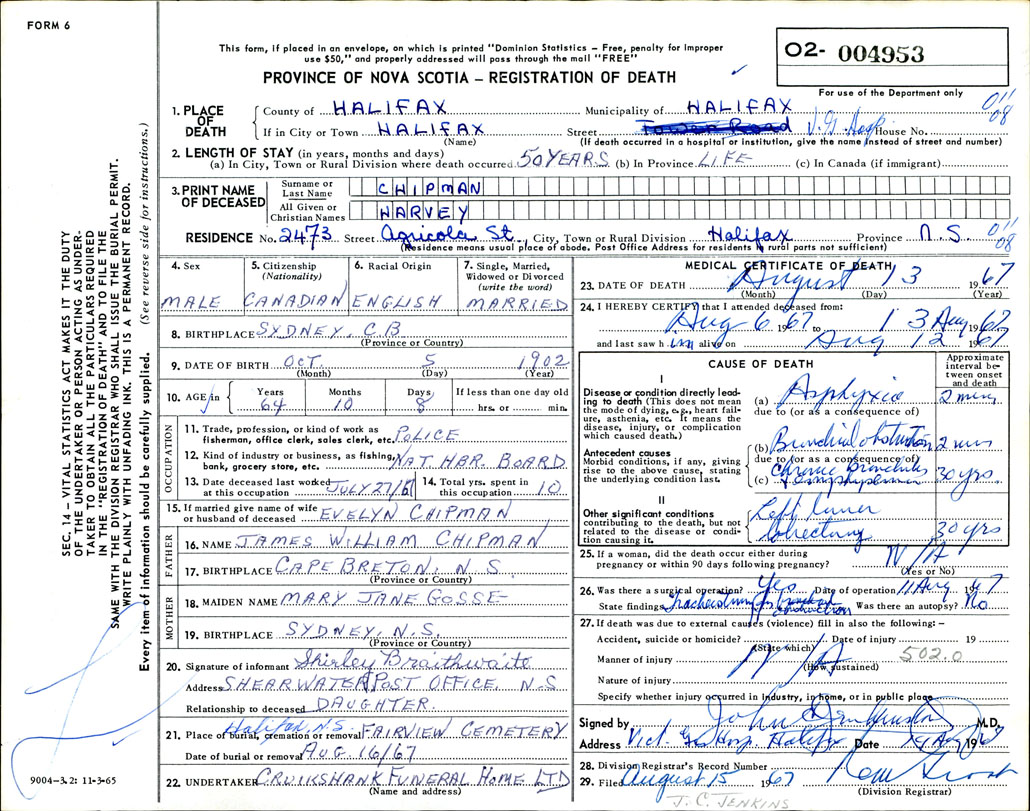 FORM 6
This form, if placed in an envelope, on which is printed "Dominion Statistics – Free, penalty for improper
use $50," and properly addressed will pass through the mail "FREE"
PROVINCE OF NOVA SCOTIA – REGISTRATION OF DEATH
02- 004953
For use of the Department only
011
08
1. PLACE OF DEATH
County of HALIFAX Municipality of HALIFAX
If in City or Town HALIFAX Street V.G. Hosp House No.
(Name) (If death occurred in a hospital or institution, give the name instead of street and number)
2. LENGTH OF STAY (in years, months and days)
(a) In City, Town or Rural Division where death occurred 50 YEARS (b) In Province LIFE (c) In Canada (if immigrant)
3. PRINT NAME OF DECEASED
Surname or Last Name CHIPMAN
All Given or Christian Names HARVEY
RESIDENCE No. 2473 Street Agricola St. City, Town or Rural Division Halifax Province N.S. 011
08
(Residence means usual place of abode. Post Office Address for residents in rural parts not sufficient)
4. Sex
MALE
5. Citizenship (Nationality)
CANADIAN
6. Racial Origin
ENGLISH
7. Single, Married, Widowed or Divorced (write the word)
MARRIED
8. BIRTHPLACE SYDNEY, C.B.
(Province or Country)
9. DATE OF BIRTH OCT. 5 1902
(Month) (Day) (Year)
10. AGE in Years Months Days If less than one day old
64 10 8 hrs. or min.
OCCUPATION
11. Trade, profession, or kind of work as
fisherman, office clerk, sales clerk, etc. POLICE
12. Kind of industry or business, as fishing,
bank, grocery store, etc. NAT. HBR. BOARD
13. Date deceased last worked at this occupation JULY 27/61
14. Total yrs. spent in this occupation 10
15. If married give name of wife
or husband of deceased EVELYN CHIPMAN
FATHER
16. NAME JAMES WILLIAM CHIPMAN
17. BIRTHPLACE CAPE BRETON, N.S.
(Province or Country)
MOTHER
18. MAIDEN NAME MARY JANE GOSSE
19. BIRTHPLACE SYDNEY, N.S.
(Province or Country)
20. Signature of informant Shirley Braithwaite
Address SHEARWATER POST OFFICE, N.S.
Relationship to deceased DAUGHTER.
Halifax, N.S.
21. Place of burial, cremation or removal FAIRVIEW CEMETERY
Date of burial or removal AUG. 16/67
22. UNDERTAKER CRUIKSHANK FUNERAL HOME LTD
(Name and address)
MEDICAL CERTIFICATE OF DEATH
23. DATE OF DEATH August 13 1967
(Month) (Day) (Year)
24. I HEREBY CERTIFY that I attended deceased from:
Aug 6 1967 to 13 Aug 1967
and last saw him alive on Aug 12 1967
CAUSE OF DEATH
Approximate interval between onset and death
I
Disease or condition directly leading to death (This does not mean the mode of dying, e.g., heart failure, asthenia, etc. It means the disease, injury, or complication which caused death.)
(a) Asphyxia 2 min
due to (or as a consequence of)
Antecedent causes
Morbid conditions, if any, giving rise to the above cause, stating the underlying condition last.
(b) Bronchial obstruction 2 min
due to (or as a consequence of)
(c) Chronic Bronchitis
& emphysema 30 yrs.
II
Other significant conditions
contributing to the death, but not related to the disease or condition causing it.
Left lower
lobectomy 30 yrs
25. If a woman, did the death occur either during
pregnancy or within 90 days following pregnancy? N/A
(Yes or No)
26. Was there a surgical operation? Yes Date of operation 11 Aug 1967
State findings Tracheostomy for bronchial obstruction Was there an autopsy? No
27. If death was due to external causes (violence) fill in also the following: –
Accident, suicide or homicide? Date of injury 19
(State which)
Manner of injury N/A 502.0
(How sustained)
Nature of injury
Specify whether injury occurred in industry, in home, or in public place
Signed by John M.D.
Address Vict. Gen Hosp. Halifax Date 14 Aug 1967
28. Division Registrar's Record Number
29. Filed August 15 1967
(Division Registrar)
J.C. JENKINS
SEC. 14 – VITAL STATISTICS ACT MAKES IT THE DUTY
OF THE UNDERTAKER OR PERSON ACTING AS UNDER-
TAKER TO OBTAIN ALL THE PARTICULARS REQUIRED
IN THE "REGISTRATION OF DEATH" AND TO FILE THE
SAME WITH THE DIVISION REGISTRAR WHO SHALL ISSUE THE BURIAL PERMIT.
WRITE PLAINLY WITH UNFADING INK. THIS IS A PERMANENT RECORD.
Every item of information should be carefully supplied. (See reverse side for instructions.)
9004-3.2: 11-3-65